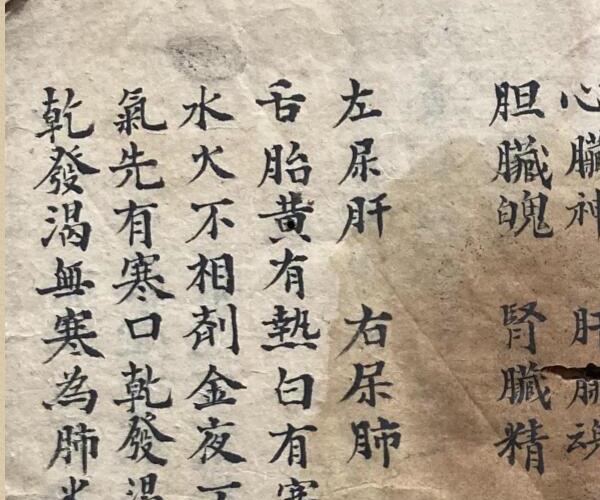 心臟神 肝臟魂
胆臟魄 腎臟精
左尿肝 右尿肺
舌胎黄有熱白有寒
水火不相剤金夜
氣先有寒口乾發渴
乾發渴無寒為肺